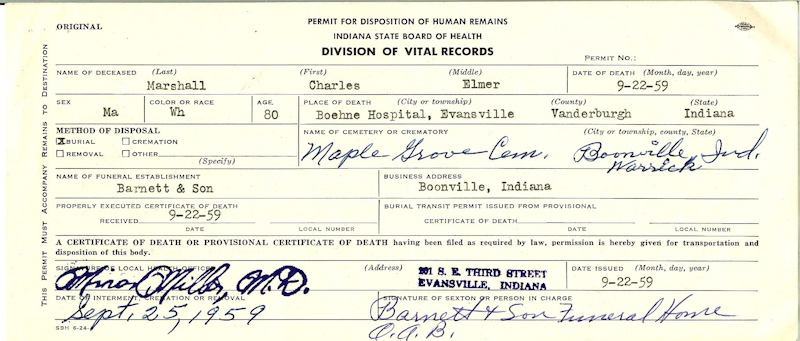 ORIGINAL
PERMIT FOR DISPOSITION OF HUMAN REMAINS
INDIANA STATE BOARD OF HEALTH
DIVISION OF VITAL RECORDS
PERMIT NO.:
THIS PERMIT MUST ACCOMPANY REMAINS TO DESTINATION
NAME OF DECEASED (Last) (First) (Middle) DATE OF DEATH (Month, day, year)
Marshall Charles Elmer 9-22-59
SEX COLOR OR RACE AGE PLACE OF DEATH (City or township) (County) (State)
Ma Wh 80 Boehne Hospital, Evansville Vanderburgh Indiana
METHOD OF DISPOSAL NAME OF CEMETERY OR CREMATORY (City or township, county, State)
X BURIAL CREMATION Maple Grove Cem. Boonville, Ind.
REMOVAL OTHER Warrick
(Specify)
NAME OF FUNERAL ESTABLISHMENT BUSINESS ADDRESS
Barnett & Son Boonville, Indiana
PROPERLY EXECUTED CERTIFICATE OF DEATH BURIAL TRANSIT PERMIT ISSUED FROM PROVISIONAL
RECEIVED 9-22-59 CERTIFICATE OF DEATH
DATE LOCAL NUMBER DATE LOCAL NUMBER
A CERTIFICATE OF DEATH OR PROVISIONAL CERTIFICATE OF DEATH having been filed as required by law, permission is hereby given for transportation and
disposition of this body.
SIGNATURE OF LOCAL HEALTH OFFICER (Address) 201 S. E. THIRD STREET DATE ISSUED (Month, day, year)
Minor Miller, M.D. EVANSVILLE, INDIANA 9-22-59
DATE OF INTERMENT, CREMATION OR REMOVAL SIGNATURE OF SEXTON OR PERSON IN CHARGE
Sept. 25, 1959 Barnett & Son Funeral Home
SBH 6-24 O.A.B.